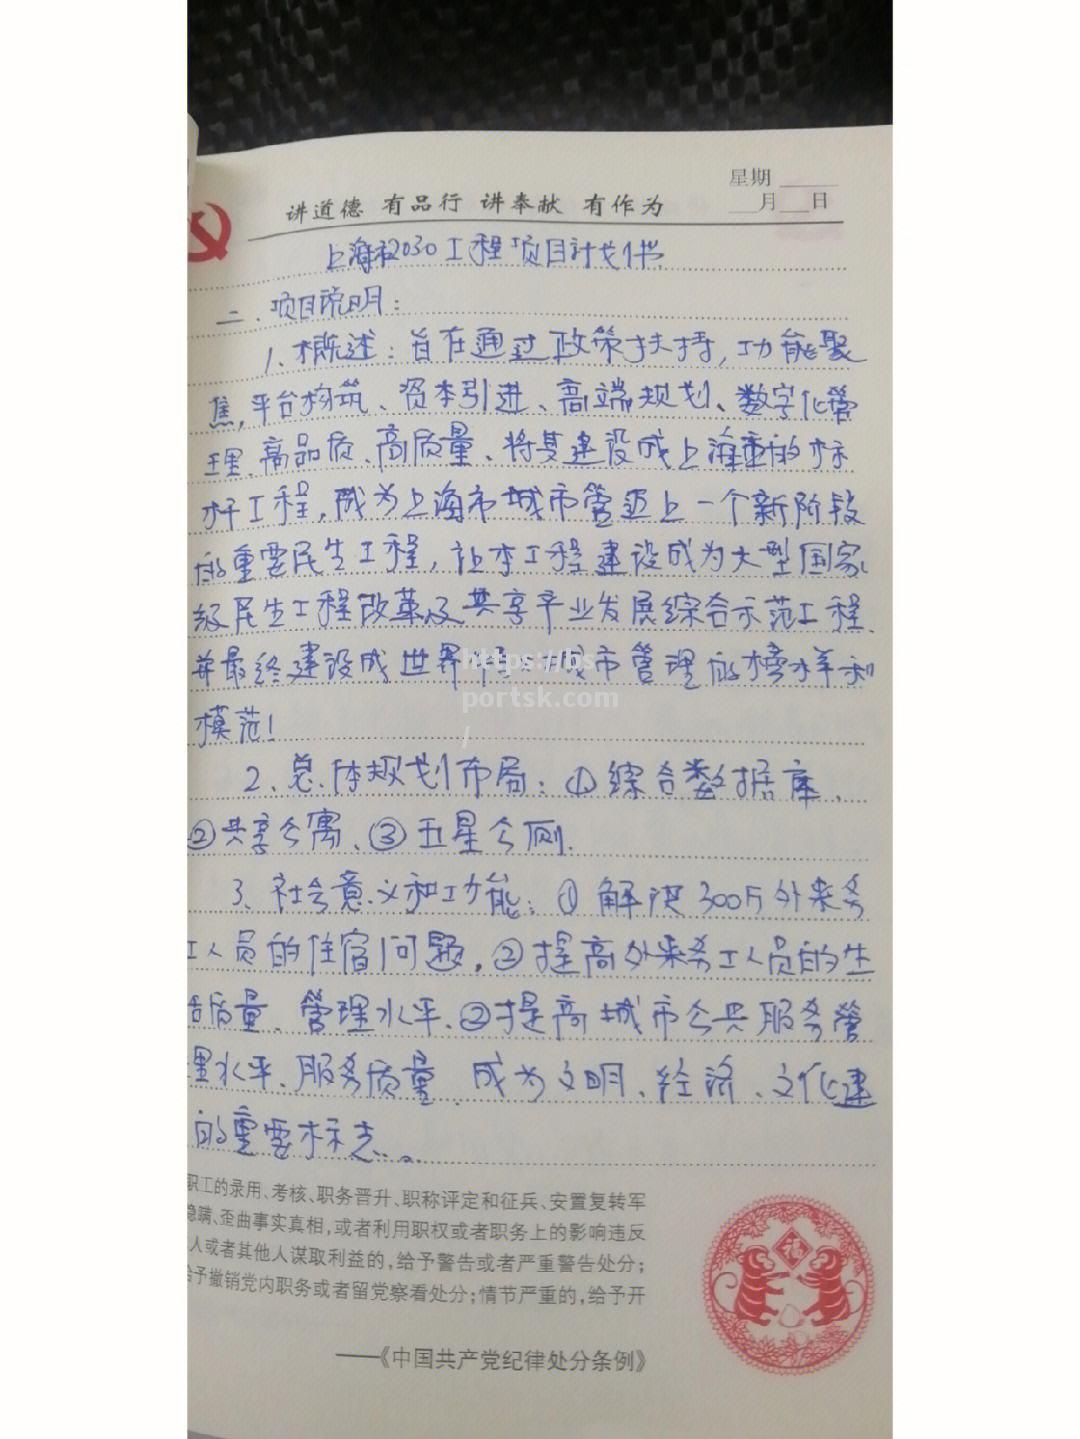 星期
月 日
讲道德 有品行 讲奉献 有作为
上海和2030工程项目计划书
二、项目说明：
1、概述：旨在通过政策扶持，功能聚
焦，平台构筑、资本引进、高端规划、数字化管
理、高品质、高质量、将其建设成上海重的标
杆工程，成为上海市城市管迈上一个新阶段
的重要民生工程，让本工程建设成为大型国家
级民生工程改革及共享产业发展综合示范工程.
并最终建设成世界 城市管理的榜样和
模范！
https://bs
portsk.com
/
2、总体规划布局：①综合数据库、
②共享公寓、③五星公厕.
3、社会意义和功能：①解决300万外来务
工人员的住宿问题，②提高外来务工人员的生
活质量、管理水平、②提高城市公共服务管
理水平、服务质量、成为文明、经济、文化建
的重要标志。。
职工的录用、考核、职务晋升、职称评定和征兵、安置复转军
隐瞒、歪曲事实真相，或者利用职权或者职务上的影响违反
人或者其他人谋取利益的，给予警告或者严重警告处分；
给予撤销党内职务或者留党察看处分；情节严重的，给予开
——《中国共产党纪律处分条例》
福